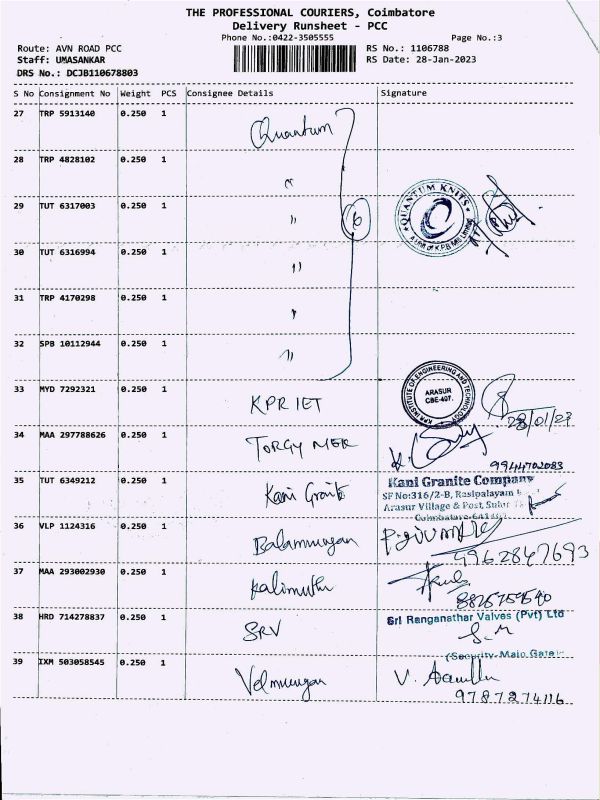 THE PROFESSIONAL COURIERS, Coimbatore
Delivery Runsheet - PCC
Phone No.:0422-3505555
Page No.:3
Route: AVN ROAD PCC
RS No.: 1106788
Staff: UMASANKAR
RS Date: 28-Jan-2023
DRS No.: DCJB110678803
S No Consignment No Weight PCS Consignee Details Signature
27 TRP 5913140 0.250 1 Quantum
28 TRP 4828102 0.250 1 "
29 TUT 6317003 0.250 1 " 6 QUANTUM KNITS
30 TUT 6316994 0.250 1 "
31 TRP 4170298 0.250 1 "
32 SPB 10112944 0.250 1 "
33 MYD 7292321 0.250 1 KPR IET KPR INSTITUTE OF ENGINEERING AND TECHNOLOGY
ARASUR
CBE-407.
28/01/23
34 MAA 297788626 0.250 1
9944702083
35 TUT 6349212 0.250 1 Kani Granite Kani Granite Company
SF No:316/2-B, Rasipalayam
Arasur Village & Post, Sulur
36 VLP 1124316 0.250 1 Balamurugan
9962847693
37 MAA 293002930 0.250 1 Kalimuthu
38 HRD 714278837 0.250 1 SRV Sri Ranganathar Valves (Pvt) Ltd
S.M
(Security-Main Gate)
39 IXM 503058545 0.250 1 Velmurugan V.
9787274116